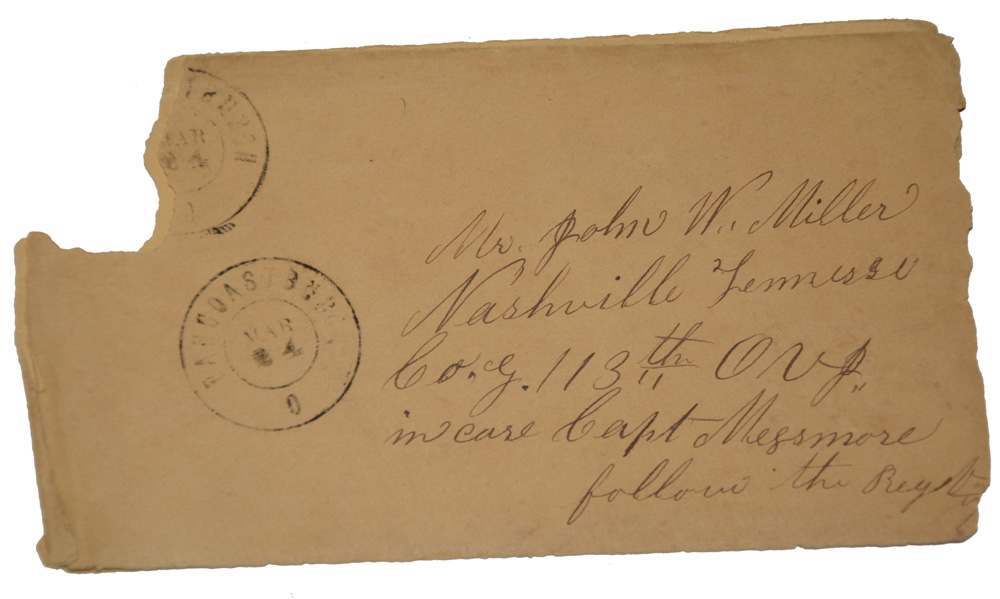 MAR
4
PANCOASTBURG
MAR
4
O
Mr. John W. Miller
Nashville Tennessee
Co. G. 113th O V I
in care Capt Messmore
follow the Regt